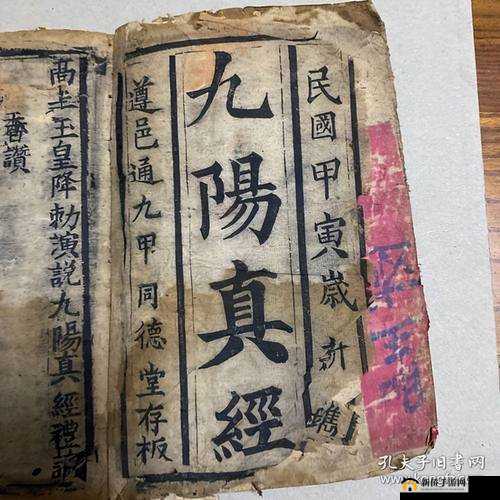 民國甲寅歲新鐫
九陽真經
遵邑通九甲同德堂存板
高上玉皇降勅演説九陽真經禮誥
香讚
孔夫子旧书网